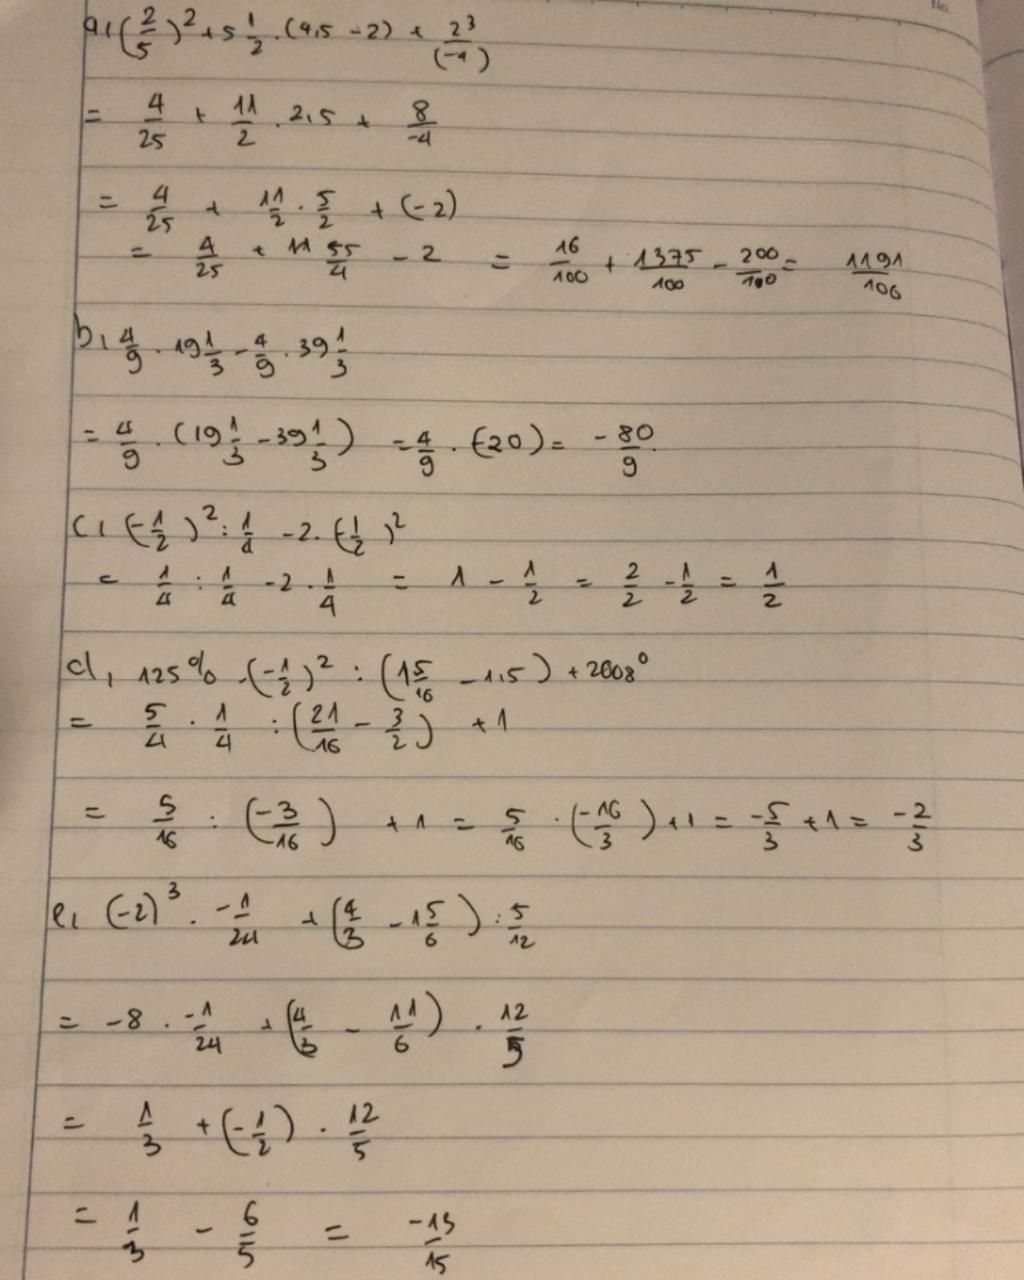 a, (2/5)² + 5 1/2 . (4,5 - 2) + 2³/(-4)
= 4/25 + 11/2 . 2,5 + 8/-4
= 4/25 + 11/2 . 5/2 + (-2)
= 4/25 + 55/4 - 2 = 16/100 + 1375/100 - 200/100 = 1191/100
b, 4/9 . 19 1/3 - 4/9 . 39 1/3
= 4/9 . (19 1/3 - 39 1/3) = 4/9 . (-20) = -80/9.
c, (-1/2)² : 1/4 - 2 . (-1/2)²
= 1/4 : 1/4 - 2 . 1/4 = 1 - 1/2 = 2/2 - 1/2 = 1/2
d, 125% . (-1/2)² : (1 5/16 - 1,5) + 2008⁰
= 5/4 . 1/4 : (21/16 - 3/2) + 1
= 5/16 : (-3/16) + 1 = 5/16 . (-16/3) + 1 = -5/3 + 1 = -2/3
e, (-2)³ . -1/24 + (4/3 - 1 5/6) : 5/12
= -8 . -1/24 + (4/3 - 11/6) . 12/5
= 1/3 + (-1/2) . 12/5
= 1/3 - 6/5 = -13/15